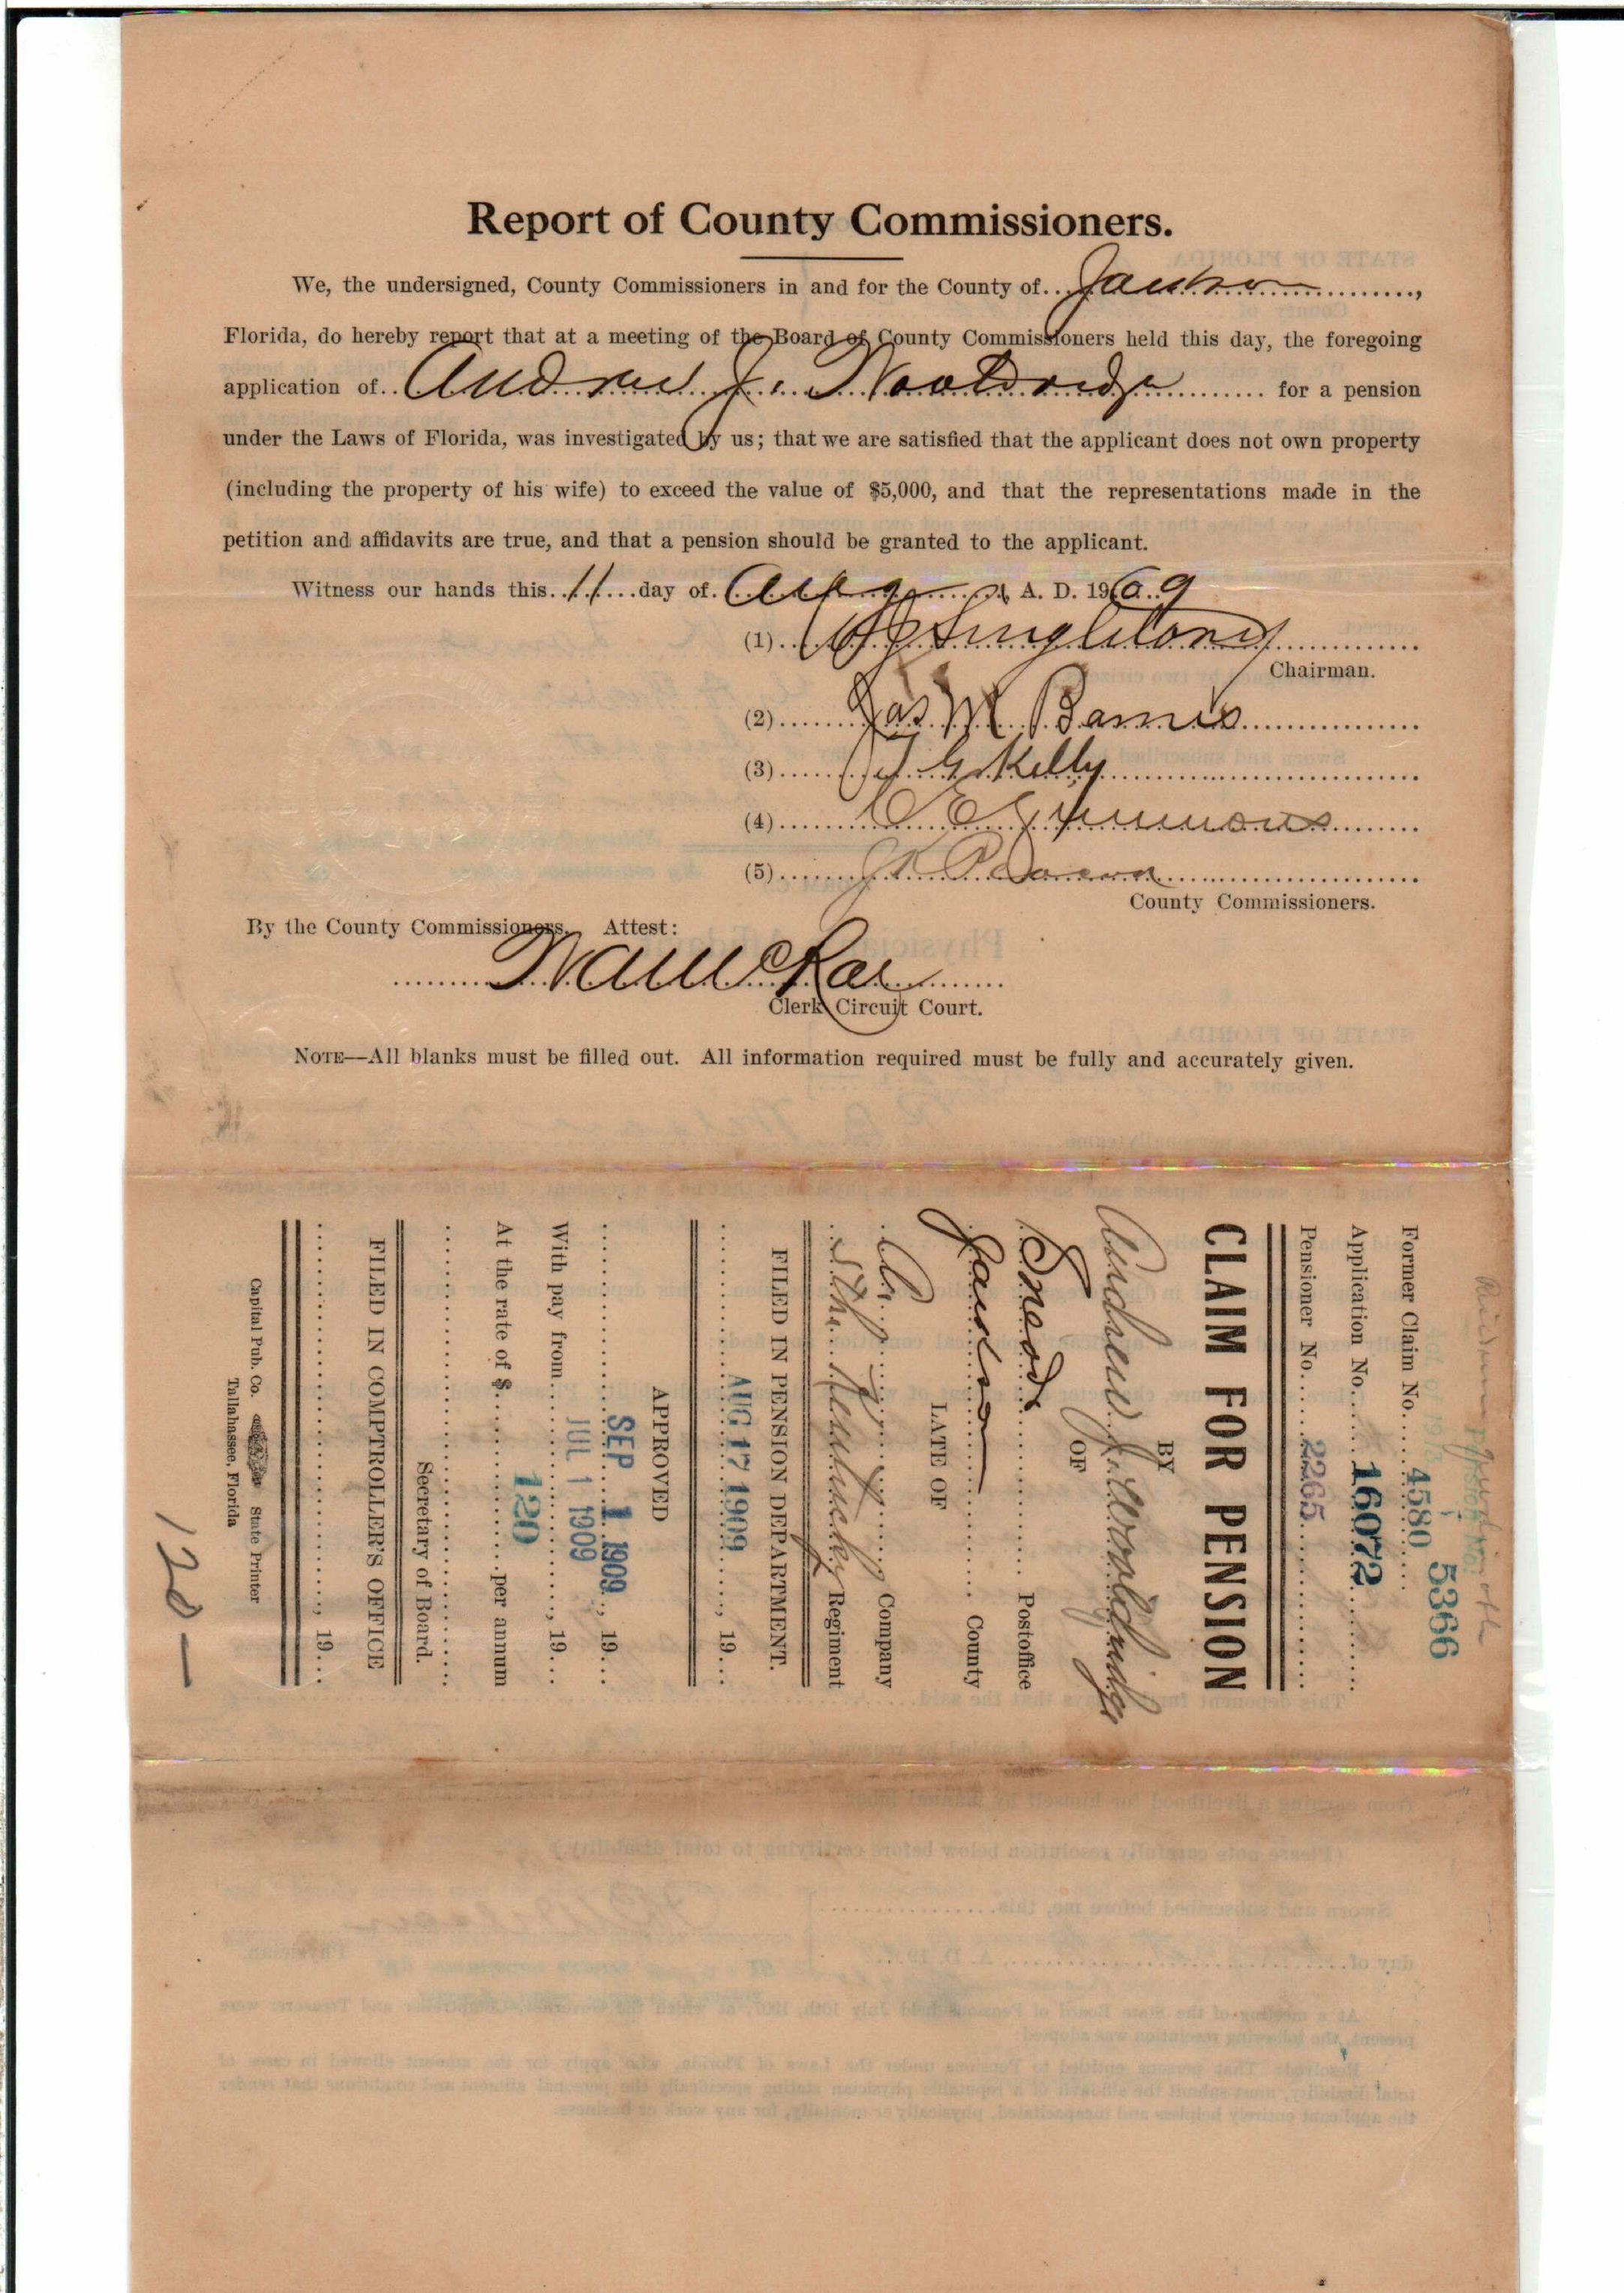 Report of County Commissioners.
We, the undersigned, County Commissioners in and for the County of.. Jackson ..,
Florida, do hereby report that at a meeting of the Board of County Commissioners held this day, the foregoing
application of.. Andrew J. Wooldridge .. for a pension
under the Laws of Florida, was investigated by us; that we are satisfied that the applicant does not own property
(including the property of his wife) to exceed the value of $5,000, and that the representations made in the
petition and affidavits are true, and that a pension should be granted to the applicant.
Witness our hands this.. 11 ..day of. Aug .., A. D. 1909
(1).. Singletary
Chairman.
(2).. Jas M Barnes
(3).. J G Kelly
(4).. C E
(5)..
County Commissioners.
By the County Commissioners. Attest:
Clerk Circuit Court.
NOTE—All blanks must be filled out. All information required must be fully and accurately given.
5366
Former Claim No.. 4580
Application No.. 16072
Pensioner No.. 2265
CLAIM FOR PENSION
BY
Andrew J. Wooldridge
OF
Sneads .. Postoffice
Jackson .. County
LATE OF
Co. .. Company
5th. Kentucky Regiment
FILED IN PENSION DEPARTMENT.
AUG 17 1909 .., 19...
APPROVED
SEP 1 1909 .., 19...
With pay from.. JUL 1 1909 .., 19...
At the rate of $.. 120 ..per annum
Secretary of Board.
FILED IN COMPTROLLER'S OFFICE
.., 19...
Capital Pub. Co. State Printer
Tallahassee, Florida
120 —